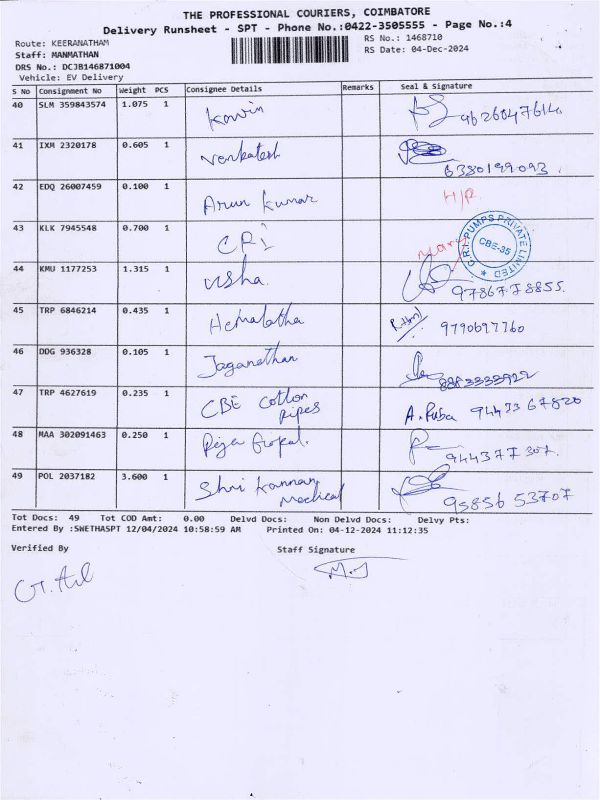 THE PROFESSIONAL COURIERS, COIMBATORE
Delivery Runsheet - SPT - Phone No.:0422-3505555 - Page No.:4
Route: KEERANATHAM
RS No.: 1468710
Staff: MANMATHAN
RS Date: 04-Dec-2024
DRS No.: DCJB146871004
Vehicle: EV Delivery
S No Consignment No Weight PCS Consignee Details Remarks Seal & Signature
40 SLM 359843574 1.075 1 Kavin 9626047614
41 IXM 2320178 0.605 1 Venkatesh 6380199093
42 EDQ 26007459 0.100 1 Arun Kumar H/P
43 KLK 7945548 0.700 1 CRI
C.R.I. PUMPS PRIVATE LIMITED CBE-35
44 KMU 1177253 1.315 1 Usha. 9786778855
45 TRP 6846214 0.435 1 Hemalatha 9790697760
46 DDG 936328 0.105 1 Jaganathan 8883333922
47 TRP 4627619 0.235 1 CBE Cotton A. Puba 9443367820
Pipes
48 MAA 302091463 0.250 1 Gopal. 944377307.
49 POL 2037182 3.600 1 Shri Kannan 95856 53707
Medical
Tot Docs: 49 Tot COD Amt: 0.00 Delvd Docs: Non Delvd Docs: Delvy Pts:
Entered By :SWETHASPT 12/04/2024 10:58:59 AM Printed On: 04-12-2024 11:12:35
Verified By Staff Signature